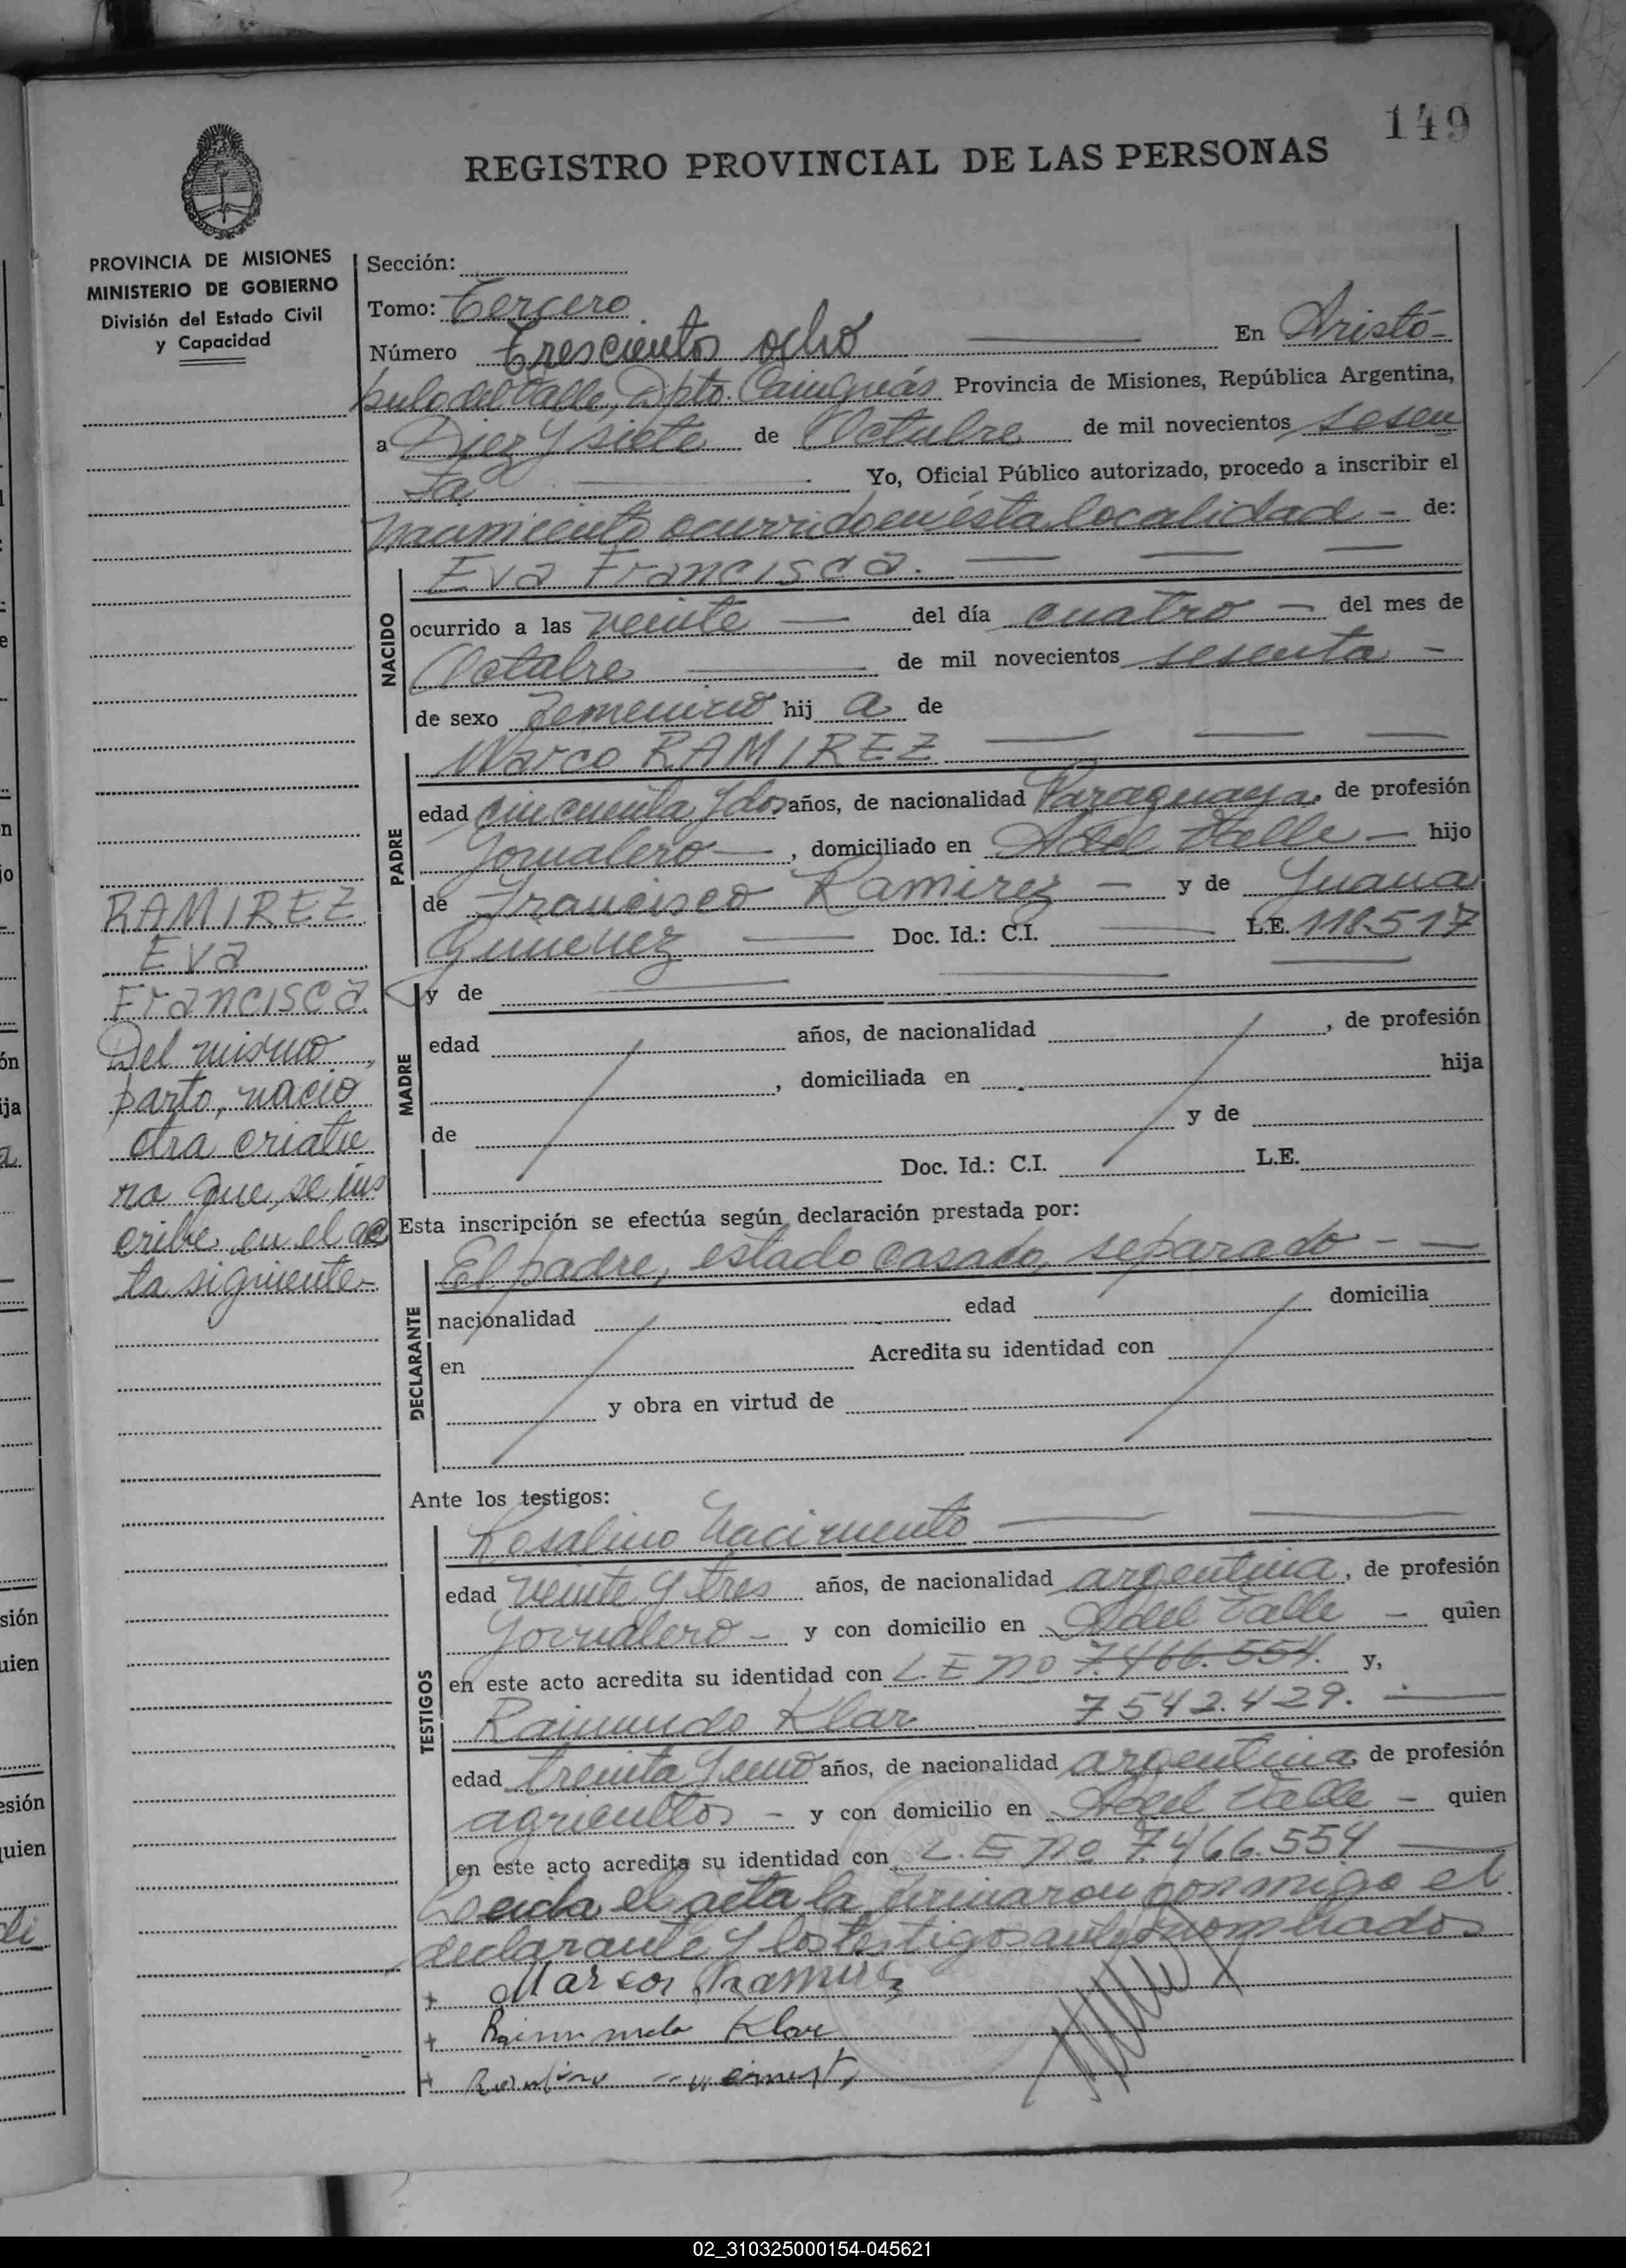 149
REGISTRO PROVINCIAL DE LAS PERSONAS
PROVINCIA DE MISIONES
MINISTERIO DE GOBIERNO
División del Estado Civil
y Capacidad
Sección:
Tomo: Tercero
Número Trescientos ocho En Aristó-
bulo del Valle, Dpto. Cainguás Provincia de Misiones, República Argentina,
a Diez y siete de Octubre de mil novecientos sesen
ta Yo, Oficial Público autorizado, procedo a inscribir el
nacimiento ocurrido en ésta localidad - de:
NACIDO
Eva Francisca.
ocurrido a las veinte del día cuatro - del mes de
Octubre de mil novecientos sesenta -
de sexo femenino hij a de
PADRE
Marco RAMIREZ
edad cincuenta y dos años, de nacionalidad Paraguaya, de profesión
Jornalero - , domiciliado en A del Valle - hijo
de Francisco Ramirez - y de Juana
Gimenez Doc. Id.: C.I. L.E. 118.517
MADRE
y de
edad años, de nacionalidad , de profesión
, domiciliada en hija
de y de
Doc. Id.: C.I. L.E.
RAMIREZ
Eva
Francisca.
Del mismo
parto, nació
otra criatu
ra que se ins
cribe en el ac
ta siguiente-
Esta inscripción se efectúa según declaración prestada por:
DECLARANTE
El padre, estado casado, separado - -
nacionalidad edad domicilia
en Acredita su identidad con
y obra en virtud de
Ante los testigos:
TESTIGOS
Rosalino Nacimento
edad veinte y tres años, de nacionalidad argentina, de profesión
Jornalero - y con domicilio en A del Valle - quien
en este acto acredita su identidad con L. E no 7.466.554. y,
Raimundo Klar 7542.429.
edad treinta y uno años, de nacionalidad argentina, de profesión
agricultor - y con domicilio en A del Valle - quien
en este acto acredita su identidad con L. E no 7.466.554
Leida el acta la firmaron conmigo el
declarante y los testigos antes nombrados
+ Marcos Ramirez
+ Raimundo Klar
+
02_310325000154-045621